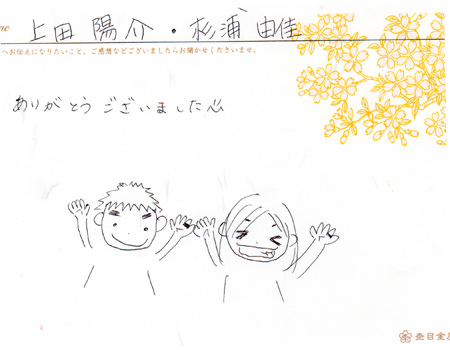 上田 陽介・杉浦 由佳
へお伝えになりたいこと、ご感想などございましたらお聞かせくださいませ。
ありがとうございました心
杢目金屋